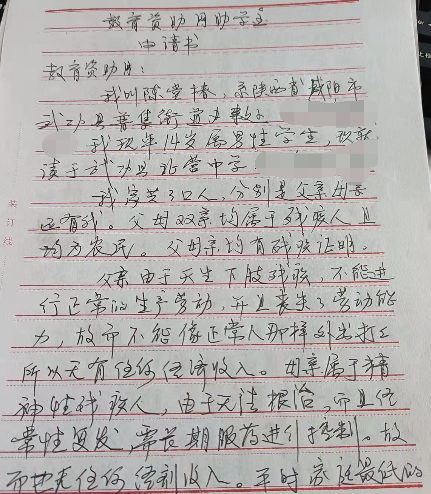 教育资助月助学金
申请书
教育资助月：
我叫陈堂椿，系陕西省咸阳市
武功县普集街道办
我现年14岁属男性学生，现就
读于武功县 中学
我家共3口人，分别是父亲母亲
还有我。父母双亲均属于残疾人且
均为农民。父母亲均有残疾证明。
父亲由于天生下肢残疾，不能进
行正常的生产劳动，并且丧失了劳动能
力，故而不能像正常人那样外出打工
所以无有任何经济收入。母亲属于精
神性残疾人，由于无法根治，而且经
常性复发，需长期服药进行控制。故
而也无任何经济收入。平时家庭最低的
装订线